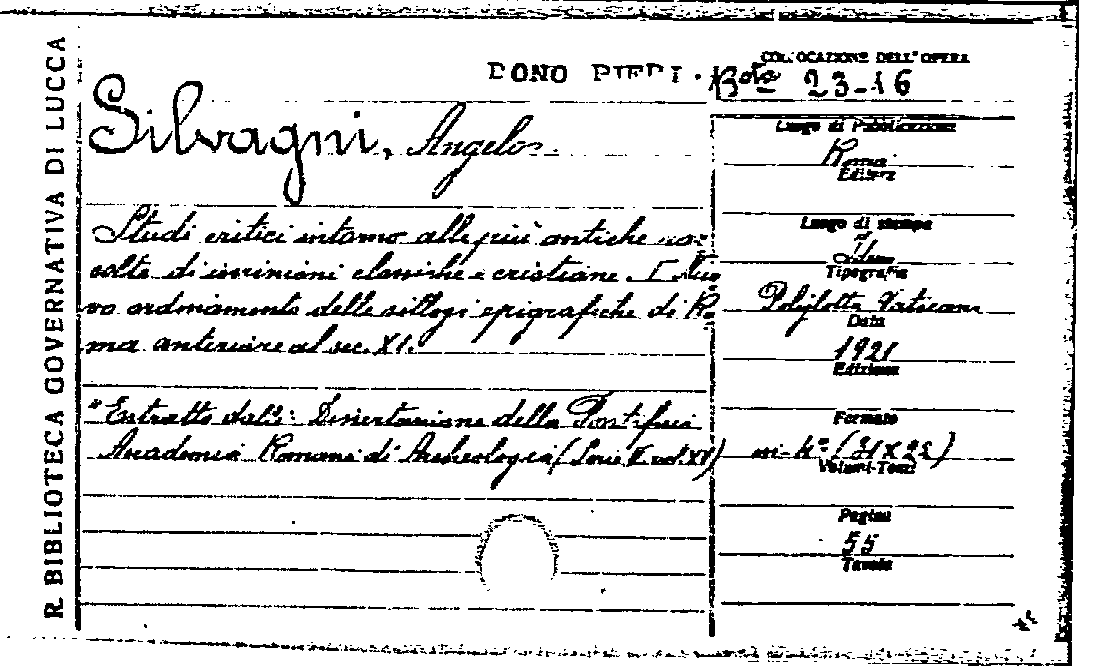 R. BIBLIOTECA GOVERNATIVA DI LUCCA
DONO PIERI.
COLLOCAZIONE DELL'OPERA
Bta 23-16
Silvagni, Angelo.
Studi critici intorno alle più antiche rac=
colte di iscrizioni classiche e cristiane. I Nuo
vo ordinamento delle sillogi epigrafiche di Ro
ma anteriore al sec. XI.
"Estratto dalle: Dissertazione della Pontificia
Accademia Romana di Archeologia (Serie II vol. XV)
Luogo di Pubblicazione
Roma
Editore
Luogo di stampa
Tipografia
Poliglotta Vaticana
Data
1921
Edizione
Formato
in-4° (31x22)
Volumi-Tomi
Pagine
55
Tavole